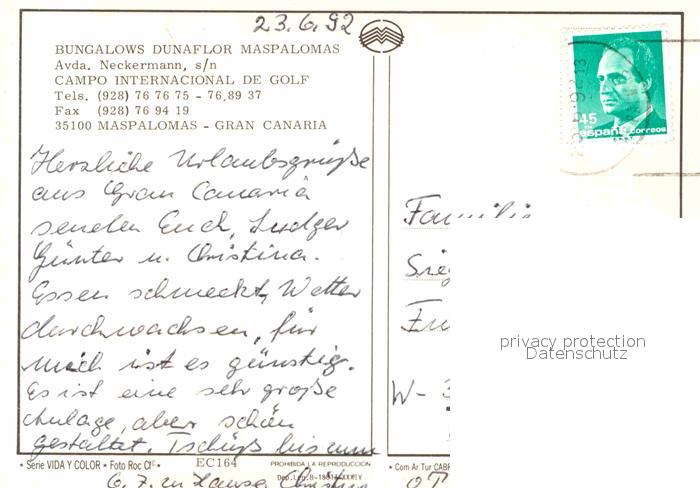 23.6.92
BUNGALOWS DUNAFLOR MASPALOMAS
Avda. Neckermann, s/n
CAMPO INTERNACIONAL DE GOLF
Tels. (928) 76 76 75 - 76.89 37
Fax (928) 76 94 19
35100 MASPALOMAS - GRAN CANARIA
Herzliche Urlaubsgrüße
aus Gran Canaria
senden Euch, Ludger
Günter u. Christina.
Essen schmeckt, Wetter
durchwachsen, für
mich ist es günstig.
Es ist eine sehr große
Anlage, aber schön
gestaltet. Tschüß bis zum
6. 7. zu Hause Christina
45
españa correos
Familie
Sieg
W-
privacy protection
Datenschutz
• Serie VIDA Y COLOR • Foto Roc Cl.
EC164
PROHIBIDA LA REPRODUCCION
• Com Ar Tur CABR